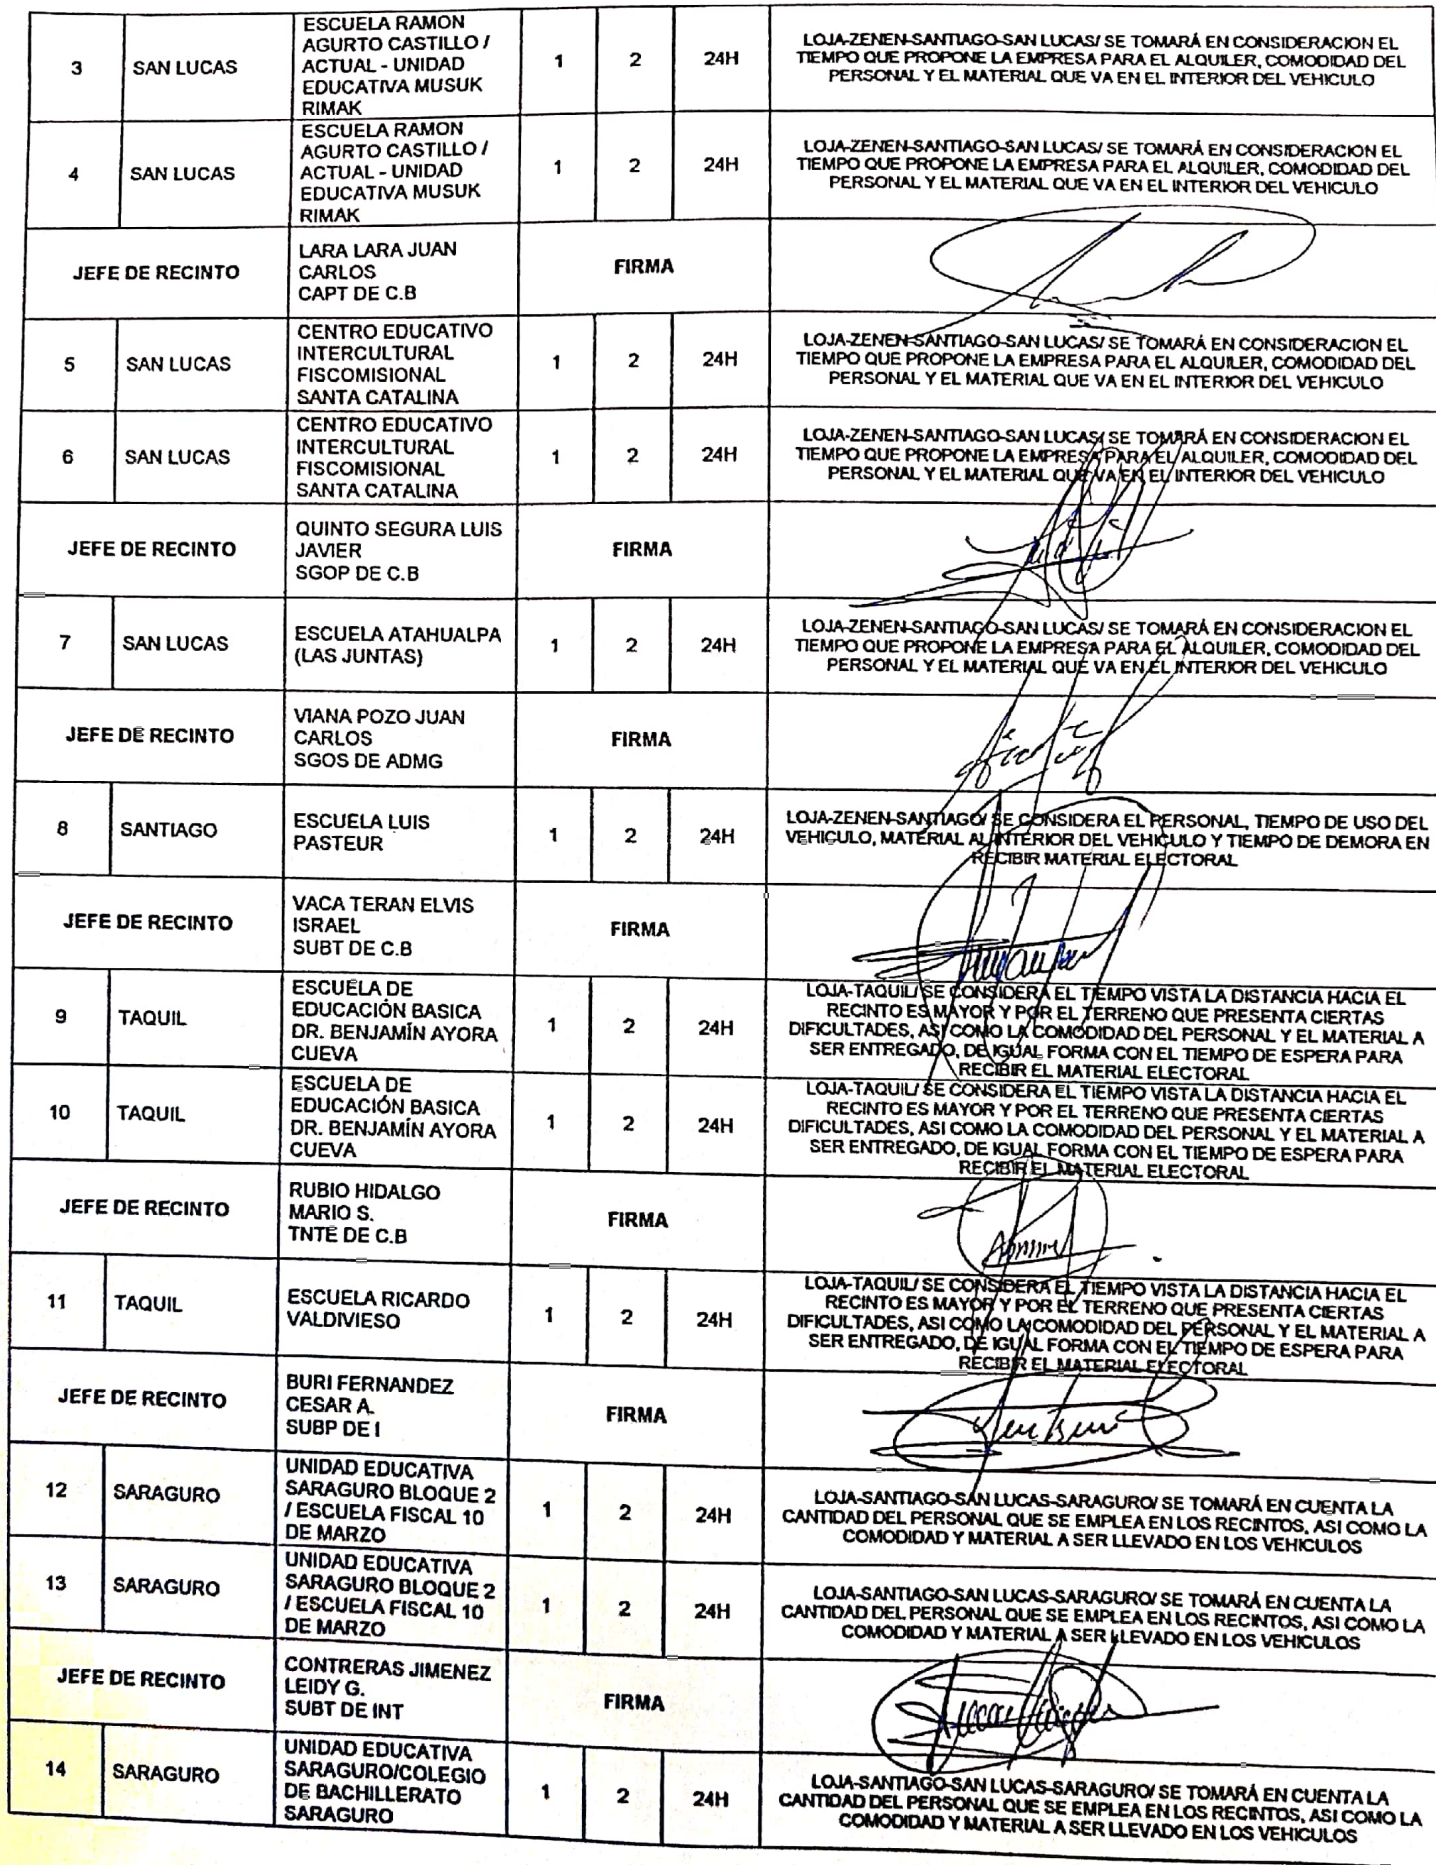 ESCUELA RAMON
AGURTO CASTILLO /
3 SAN LUCAS ACTUAL - UNIDAD 1 2 24H
EDUCATIVA MUSUK
RIMAK
LOJA-ZENEN-SANTIAGO-SAN LUCAS/ SE TOMARÁ EN CONSIDERACION EL
TIEMPO QUE PROPONE LA EMPRESA PARA EL ALQUILER, COMODIDAD DEL
PERSONAL Y EL MATERIAL QUE VA EN EL INTERIOR DEL VEHICULO
ESCUELA RAMON
AGURTO CASTILLO /
4 SAN LUCAS ACTUAL - UNIDAD 1 2 24H
EDUCATIVA MUSUK
RIMAK
LOJA-ZENEN-SANTIAGO-SAN LUCAS/ SE TOMARÁ EN CONSIDERACION EL
TIEMPO QUE PROPONE LA EMPRESA PARA EL ALQUILER, COMODIDAD DEL
PERSONAL Y EL MATERIAL QUE VA EN EL INTERIOR DEL VEHICULO
LARA LARA JUAN
JEFE DE RECINTO CARLOS FIRMA
CAPT DE C.B
CENTRO EDUCATIVO
INTERCULTURAL
5 SAN LUCAS FISCOMISIONAL 1 2 24H
SANTA CATALINA
LOJA-ZENEN-SANTIAGO-SAN LUCAS/ SE TOMARÁ EN CONSIDERACION EL
TIEMPO QUE PROPONE LA EMPRESA PARA EL ALQUILER, COMODIDAD DEL
PERSONAL Y EL MATERIAL QUE VA EN EL INTERIOR DEL VEHICULO
CENTRO EDUCATIVO
INTERCULTURAL
6 SAN LUCAS FISCOMISIONAL 1 2 24H
SANTA CATALINA
LOJA-ZENEN-SANTIAGO-SAN LUCAS/ SE TOMARÁ EN CONSIDERACION EL
TIEMPO QUE PROPONE LA EMPRESA PARA EL ALQUILER, COMODIDAD DEL
PERSONAL Y EL MATERIAL QUE VA EN EL INTERIOR DEL VEHICULO
QUINTO SEGURA LUIS
JEFE DE RECINTO JAVIER FIRMA
SGOP DE C.B
7 SAN LUCAS ESCUELA ATAHUALPA 1 2 24H
(LAS JUNTAS)
LOJA-ZENEN-SANTIAGO-SAN LUCAS/ SE TOMARÁ EN CONSIDERACION EL
TIEMPO QUE PROPONE LA EMPRESA PARA EL ALQUILER, COMODIDAD DEL
PERSONAL Y EL MATERIAL QUE VA EN EL INTERIOR DEL VEHICULO
VIANA POZO JUAN
JEFE DE RECINTO CARLOS FIRMA
SGOS DE ADMG
8 SANTIAGO ESCUELA LUIS 1 2 24H
PASTEUR
LOJA-ZENEN-SANTIAGO/ SE CONSIDERA EL PERSONAL, TIEMPO DE USO DEL
VEHICULO, MATERIAL AL INTERIOR DEL VEHICULO Y TIEMPO DE DEMORA EN
RECIBIR MATERIAL ELECTORAL
VACA TERAN ELVIS
JEFE DE RECINTO ISRAEL FIRMA
SUBT DE C.B
ESCUELA DE
9 TAQUIL EDUCACIÓN BASICA 1 2 24H
DR. BENJAMÍN AYORA
CUEVA
LOJA-TAQUIL/ SE CONSIDERA EL TIEMPO VISTA LA DISTANCIA HACIA EL
RECINTO ES MAYOR Y POR EL TERRENO QUE PRESENTA CIERTAS
DIFICULTADES, ASI COMO LA COMODIDAD DEL PERSONAL Y EL MATERIAL A
SER ENTREGADO, DE IGUAL FORMA CON EL TIEMPO DE ESPERA PARA
RECIBIR EL MATERIAL ELECTORAL
ESCUELA DE
10 TAQUIL EDUCACIÓN BASICA 1 2 24H
DR. BENJAMÍN AYORA
CUEVA
LOJA-TAQUIL/ SE CONSIDERA EL TIEMPO VISTA LA DISTANCIA HACIA EL
RECINTO ES MAYOR Y POR EL TERRENO QUE PRESENTA CIERTAS
DIFICULTADES, ASI COMO LA COMODIDAD DEL PERSONAL Y EL MATERIAL A
SER ENTREGADO, DE IGUAL FORMA CON EL TIEMPO DE ESPERA PARA
RECIBIR EL MATERIAL ELECTORAL
RUBIO HIDALGO
JEFE DE RECINTO MARIO S. FIRMA
TNTE DE C.B
11 TAQUIL ESCUELA RICARDO 1 2 24H
VALDIVIESO
LOJA-TAQUIL/ SE CONSIDERA EL TIEMPO VISTA LA DISTANCIA HACIA EL
RECINTO ES MAYOR Y POR EL TERRENO QUE PRESENTA CIERTAS
DIFICULTADES, ASI COMO LA COMODIDAD DEL PERSONAL Y EL MATERIAL A
SER ENTREGADO, DE IGUAL FORMA CON EL TIEMPO DE ESPERA PARA
RECIBIR EL MATERIAL ELECTORAL
BURI FERNANDEZ
JEFE DE RECINTO CESAR A. FIRMA
SUBP DE I
UNIDAD EDUCATIVA
12 SARAGURO SARAGURO BLOQUE 2 1 2 24H
/ ESCUELA FISCAL 10
DE MARZO
LOJA-SANTIAGO-SAN LUCAS-SARAGURO/ SE TOMARÁ EN CUENTA LA
CANTIDAD DEL PERSONAL QUE SE EMPLEA EN LOS RECINTOS, ASI COMO LA
COMODIDAD Y MATERIAL A SER LLEVADO EN LOS VEHICULOS
UNIDAD EDUCATIVA
13 SARAGURO SARAGURO BLOQUE 2 1 2 24H
/ ESCUELA FISCAL 10
DE MARZO
LOJA-SANTIAGO-SAN LUCAS-SARAGURO/ SE TOMARÁ EN CUENTA LA
CANTIDAD DEL PERSONAL QUE SE EMPLEA EN LOS RECINTOS, ASI COMO LA
COMODIDAD Y MATERIAL A SER LLEVADO EN LOS VEHICULOS
CONTRERAS JIMENEZ
JEFE DE RECINTO LEIDY G. FIRMA
SUBT DE INT
UNIDAD EDUCATIVA
14 SARAGURO SARAGURO/COLEGIO 1 2 24H
DE BACHILLERATO
SARAGURO
LOJA-SANTIAGO-SAN LUCAS-SARAGURO/ SE TOMARÁ EN CUENTA LA
CANTIDAD DEL PERSONAL QUE SE EMPLEA EN LOS RECINTOS, ASI COMO LA
COMODIDAD Y MATERIAL A SER LLEVADO EN LOS VEHICULOS